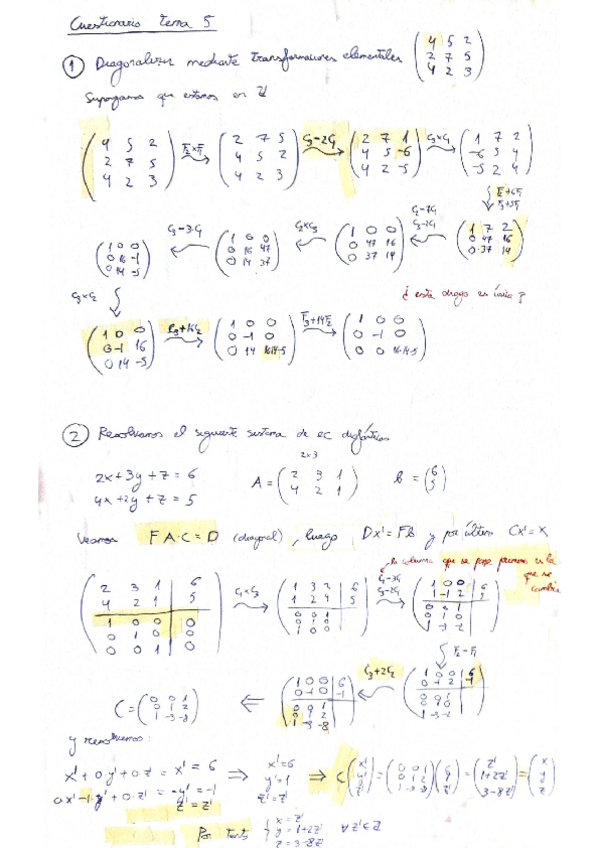 Cuestionario tema 5
① Diagonalizar mediante transformaciones elementales (4 5 2 / 2 7 5 / 4 2 3)
Supongamos que estamos en ℤ
(4 5 2 / 2 7 5 / 4 2 3) F₂×F₁ (2 7 5 / 4 5 2 / 4 2 3) C₃-2C₁ (2 7 1 / 4 5 -6 / 4 2 -5) C₃×C₁ (1 7 2 / -6 5 4 / -5 2 4)
F₂+6F₁
F₃+5F₁
(1 0 0 / 0 16 -1 / 0 14 -5) C₃-3C₂ (1 0 0 / 0 16 47 / 0 14 37) C₂×C₃ (1 0 0 / 0 47 16 / 0 37 14) C₂-7C₁ C₃-2C₁ (1 7 2 / 0 47 16 / 0 37 14)
¿ esta diago es única ?
C₃×C₂
(1 0 0 / 0 -1 16 / 0 14 -5) C₃+16C₂ (1 0 0 / 0 -1 0 / 0 14 16·14-5) F₃+14F₂ (1 0 0 / 0 -1 0 / 0 0 16·14-5)
② Resolvamos el siguiente sistema de ec diofánticas
2x+3y+z = 6
4x+2y+z = 5
2×3
A = (2 3 1 / 4 2 1) b = (6 / 5)
Veamos F A·C = D (diagonal), luego Dx' = Fb y por último Cx' = x
la columna que se pasa primero es la que se cambia
(2 3 1 | 6 / 4 2 1 | 5 / 1 0 0 | 0 / 0 1 0 | 0 / 0 0 1 | 0) C₁×C₃ (1 3 2 | 6 / 1 2 4 | 5 / 0 0 1 / 0 1 0 / 1 0 0) C₂-3C₁ C₃-2C₁ (1 0 0 | 6 / 1 -1 2 | 5 / 0 0 1 / 0 1 0 / 1 -3 -2)
F₂-F₁
C = (0 0 1 / 0 1 2 / 1 -3 -8) ⇐ (1 0 0 | 6 / 0 -1 0 | -1 / 0 0 1 / 0 1 2 / 1 -3 -8) C₃+2C₂ (1 0 0 | 6 / 0 -1 2 | -1 / 0 0 1 / 0 1 0 / 1 -3 -2)
y resolvemos:
x' + 0·y' + 0·z' = x' = 6 ⇒ x' = 6
0x' - 1·y' + 0·z' = -y' = -1 y' = 1
z' = z' z' = z'
⇒ C (x' / y' / z') = (0 0 1 / 0 1 2 / 1 -3 -8) (6 / 1 / z') = (z' / 1+2z' / 3-8z') = (x / y / z)
Por tanto { x = z' / y = 1+2z' / z = 3-8z' ∀z'∈ℤ